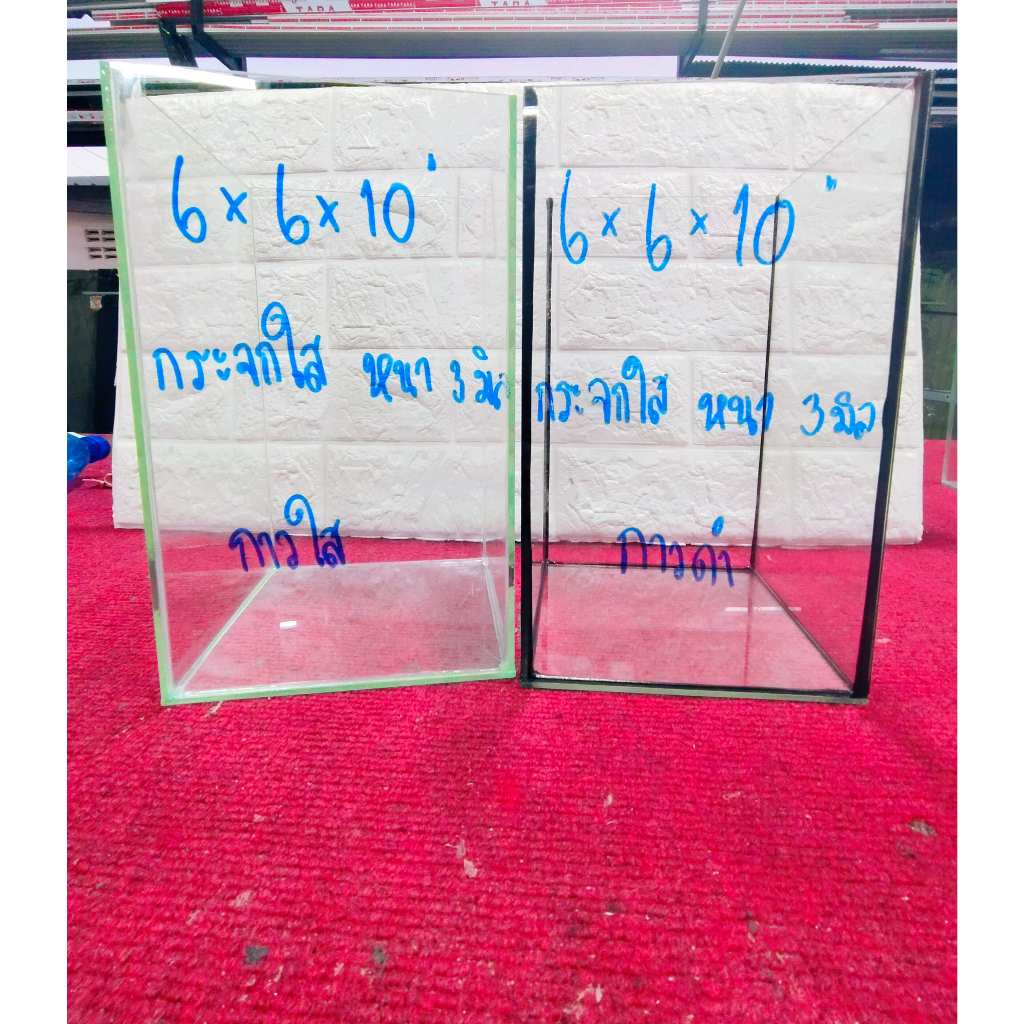 TARA
6 × 6 × 10"
กระจกใส หนา 3 มิล
กาวใส
6 × 6 × 10"
กระจกใส หนา 3 มิล
กาวดำ